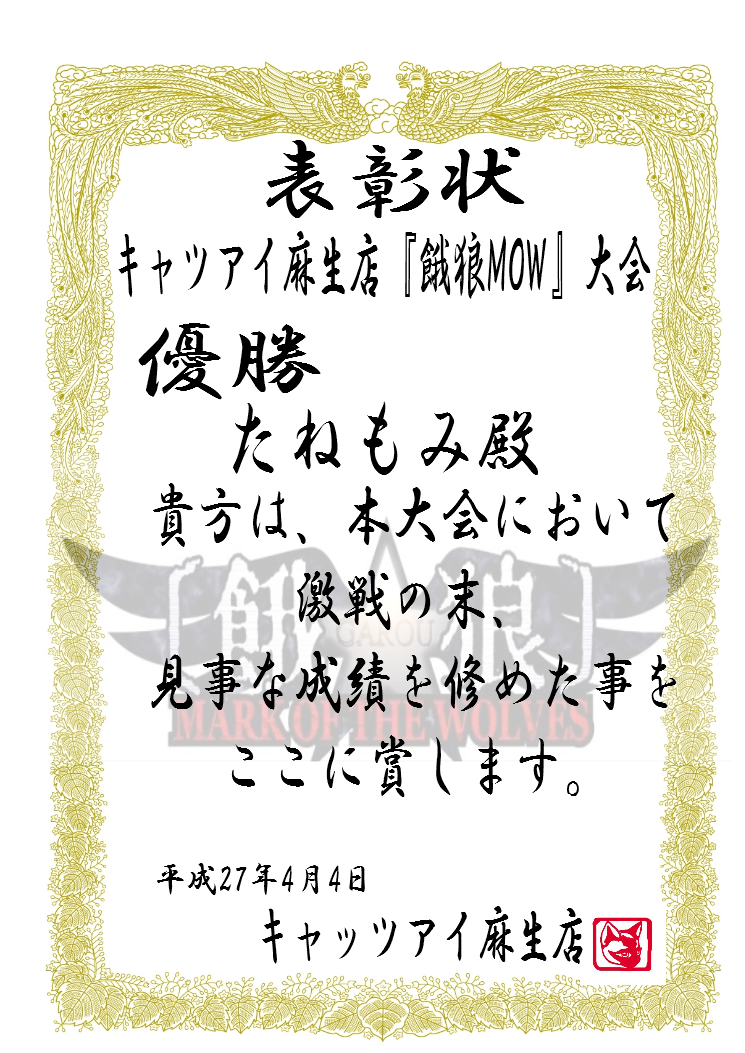 表彰状
キャツアイ麻生店『餓狼MOW』大会
優勝
たねもみ殿
貴方は、本大会において
激戦の末、
見事な成績を修めた事を
ここに賞します。
餓狼
GAROU
MARK OF THE WOLVES
平成27年4月4日
キャッツアイ麻生店